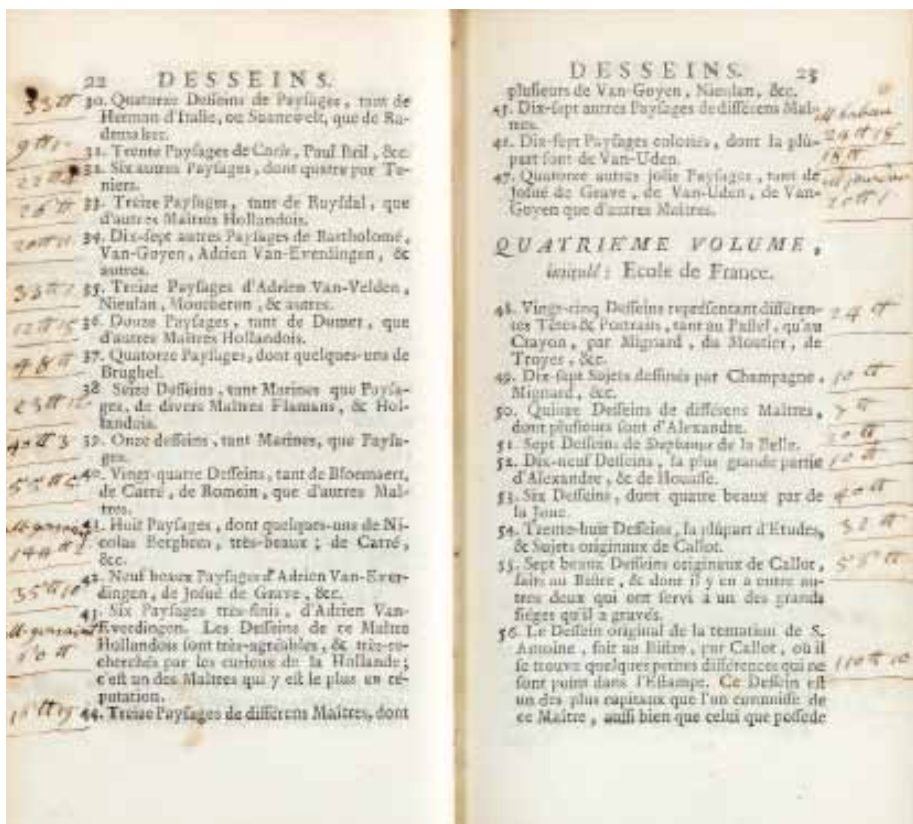 22 DESSEINS.
33 ₶ 30. Quatorze Desseins de Paysages, tant de
Herman d'Italie, ou Suanewelt, que de Ra-
demaker.
9 ₶ 31. Trente Paysages de Corle, Paul Bril, &c.
32. Six autres Paysages, dont quatre par Te-
niers.
26 ₶ 33. Treize Paysages, tant de Ruysdal, que
d'autres Maîtres Hollandois.
20 ₶ 34. Dix-sept autres Paysages de Bartholomé,
Van-Goyen, Adrien Van-Everdingen, &
autres.
33 ₶ 35. Treize Paysages d'Adrien Van-Velden,
Nieulan, Moucheron, & autres.
12 ₶ 15 36. Douze Paysages, tant de Dumer, que
d'autres Maîtres Hollandois.
48 ₶ 37. Quatorze Paysages, dont quelques-uns de
Brughel.
38 Seize Desseins, tant Marines que Paysa-
ges, de divers Maîtres Flamans, & Hol-
landois.
40 ₶ 3 39. Onze desseins, tant Marines, que Paysa-
ges.
55 ₶ 40. Vingt-quatre Desseins, tant de Bloemaert,
de Carré, de Romein, que d'autres Maî-
tres.
41. Huit Paysages, dont quelques-uns de Ni-
144 ₶ colas Berghem, très-beaux; de Carré,
&c.
42. Neuf beaux Paysages d'Adrien Van-Ever-
35 ₶ 10 dingen, de Josué de Grave, &c.
43. Six Paysages très-finis, d'Adrien Van-
Everdingen. Les Desseins de ce Maître
Hollandois sont très-agréables, & très-re-
cherchés par les curieux de la Hollande;
c'est un des Maîtres qui y est le plus en ré-
putation.
44. Treize Paysages de différens Maîtres, dont
DESSEINS. 23
plusieurs de Van-Goyen, Nieulan, &c.
45. Dix-sept autres Paysages de différens Maî-
tres. 24 ₶ 15
46. Dix-sept Paysages coloriés, dont la plû-
part sont de Van-Uden. 18 ₶
47. Quatorze autres jolis Paysages, tant de
Josué de Grave, de Van-Uden, de Van-
Goyen que d'autres Maîtres. 20 ₶ 1
QUATRIEME VOLUME,
intitulé: Ecole de France.
48. Vingt-cinq Desseins representant différen- 24 ₶
tes Têtes & Portraits, tant au Pastel, qu'au
Crayon, par Mignard, du Moutier, de
Troyes, &c.
49. Dix-sept Sujets dessinés par Champagne, 10 ₶
Mignard, &c.
50. Quinze Desseins de différens Maîtres, 7 ₶
dont plusieurs sont d'Alexandre.
51. Sept Desseins de Stephanus de la Belle.
52. Dix-neuf Desseins, la plus grande partie 10 ₶
d'Alexandre, & de Houasse.
53. Six Desseins, dont quatre beaux par de 40 ₶
la Joue.
54. Trente-huit Desseins, la plûpart d'Etudes, 32 ₶
& Sujets originaux de Callot.
55. Sept beaux Desseins originaux de Callot, 55 ₶
faits au Bistre, & dont il y en a entre au-
tres deux qui ont servi à un des grands
siéges qu'il a gravés.
56. Le Dessein original de la tentation de S.
Antoine, fait au Bistre, par Callot, où il
se trouve quelques petites différences qui ne 110 ₶ 10
sont point dans l'Estampe. Ce Dessein est
un des plus capitaux que l'on connoisse de
ce Maître, aussi bien que celui que possede